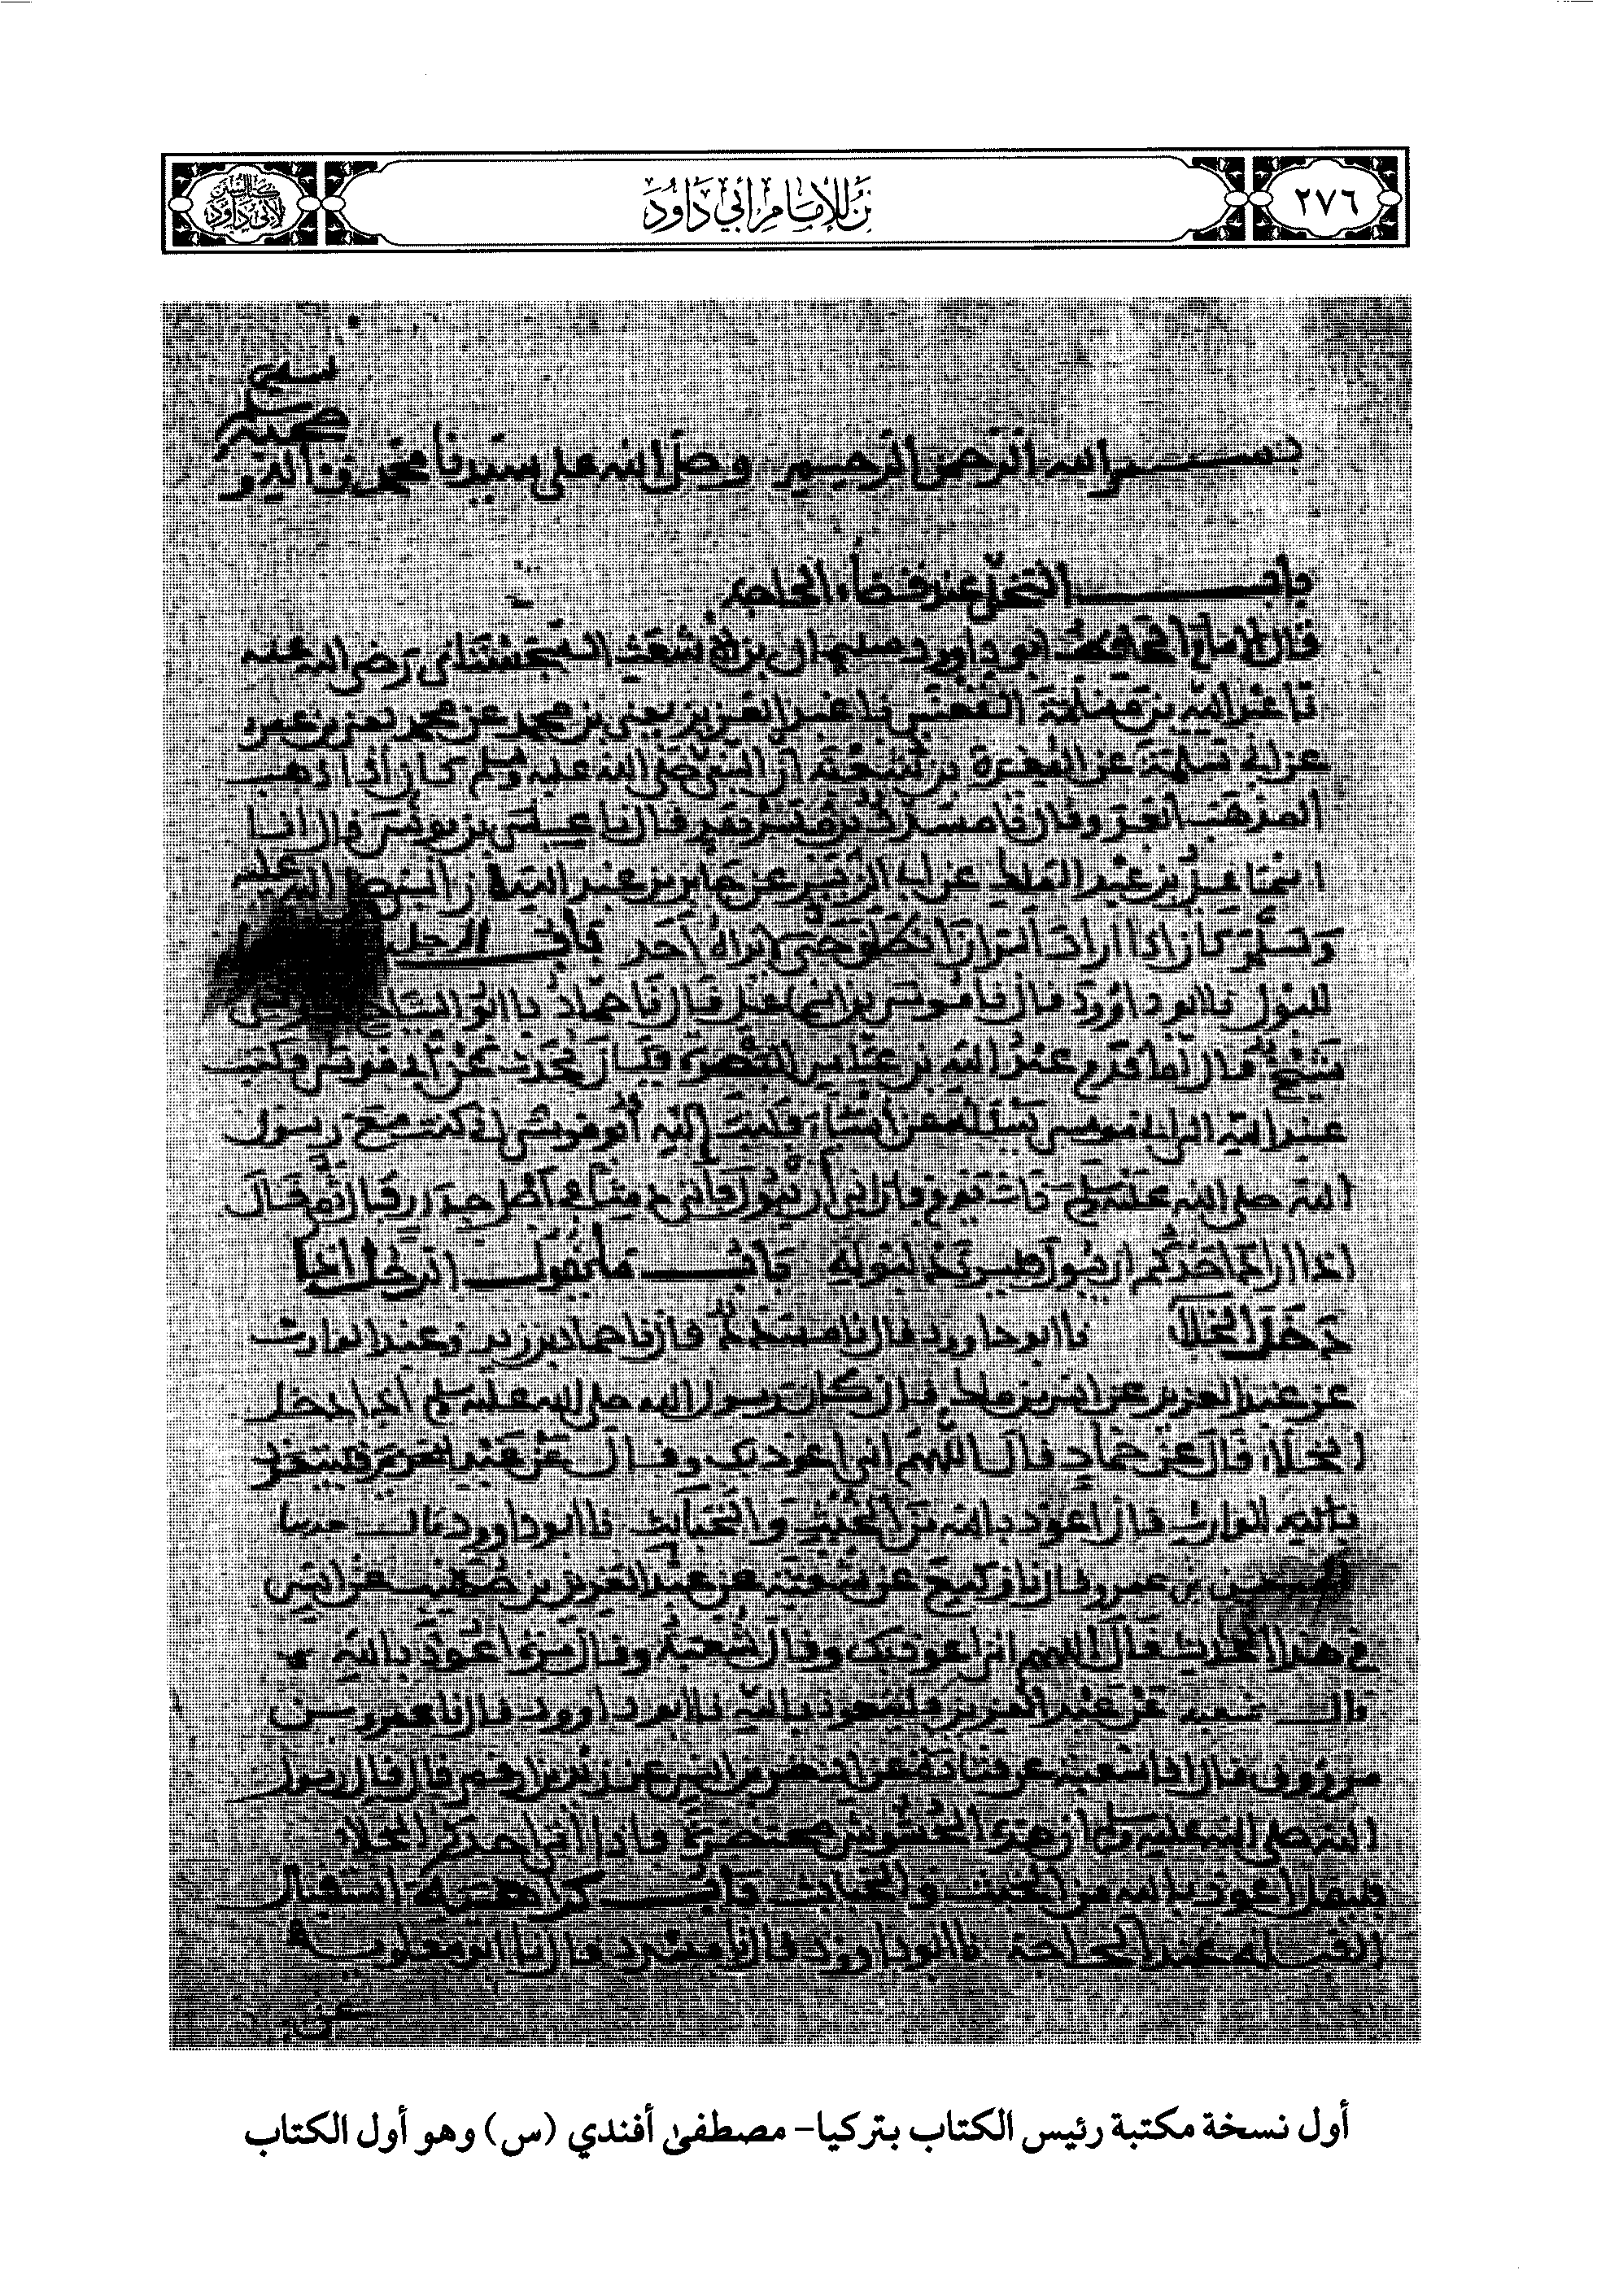 ٢٧٦
ن للإمام أبي داود
كتاب السنن
لأبي داود
بسم الله الرحمن الرحيم وصلى الله على سيدنا محمد واله و
صحبه وسلم
باب التخلي عند قضاء الحاجة
قال الامام الحافظ ابو داوود سليمان بن الاشعث السجستاني رضي الله عنه
نا عبد الله بن مسلمة القعنبي نا عبد العزيز يعني بن محمد عن محمد يعني بن عمرو
عن ابي سلمة عن المغيرة بن شعبة ان النبي صلى الله عليه وسلم كان اذا ذهب
المذهب ابعد وقال نا مسدد بن مسرهد قال نا عيسى بن يونس قال انا
اسماعيل بن عبد الملك عن ابي الزبير عن جابر بن عبد الله ان النبي صلى الله عليه
وسلم كان اذا اراد البراز انطلق حتى لا يراه احد باب الرجل
للبول نا ابو داوود قال نا موسى بن اسماعيل قال نا حماد نا ابو التياح
شيخ قال لما قدم عبد الله بن عباس البصرة فكان يحدث عن ابي موسى فكتب
عبد الله الى ابي موسى يسئله عن اشياء فكتب اليه ابو موسى اني كنت مع رسول
الله صلى الله عليه وسلم ذات يوم فاراد ان يبول فاتى دمثا في اصل جدار فبال ثم قال
اذا اراد احدكم ان يبول فليرتد لبوله باب ما يقول الرجل اذا
دخل الخلا نا ابو داوود قال نا مسدد قال نا حماد بن زيد وعبد الوارث
عن عبد العزيز عن انس بن ملك قال كان رسول الله صلى الله عليه وسلم اذا دخل
الخلا قال عن حماد قال اللهم اني اعوذ بك وقال عن عبد
الوارث قال اعوذ بالله من الخبث والخبائث نا ابو داوود قال حدثنا
الحسن بن عمرو قال نا وكيع عن شعبة عن عبد العزيز بن صهيب عن انس
في هذا الحديث قال اللهم اني اعوذ بك وقال شعبة وقال مرة اعوذ بالله
قال شعبه عن عبد العزيز فليتعوذ بالله نا ابو داوود قال نا عمرو بن
مرزوق قال انا شعبة عن قتادة عن النضر بن انس عن زيد بن ارقم قال قال رسول
الله صلى الله عليه وسلم ان هذه الحشوش محتضرة فاذا اتى احدكم الخلا
فليقل اعوذ بالله من الخبث والخبائث باب كراهية استقبال
القبلة عند الحاجة نا ابو داوود قال نا مسدد قال نا ابو معاوية
عن
أول نسخة مكتبة رئيس الكتاب بتركيا- مصطفى أفندي (س) وهو أول الكتاب